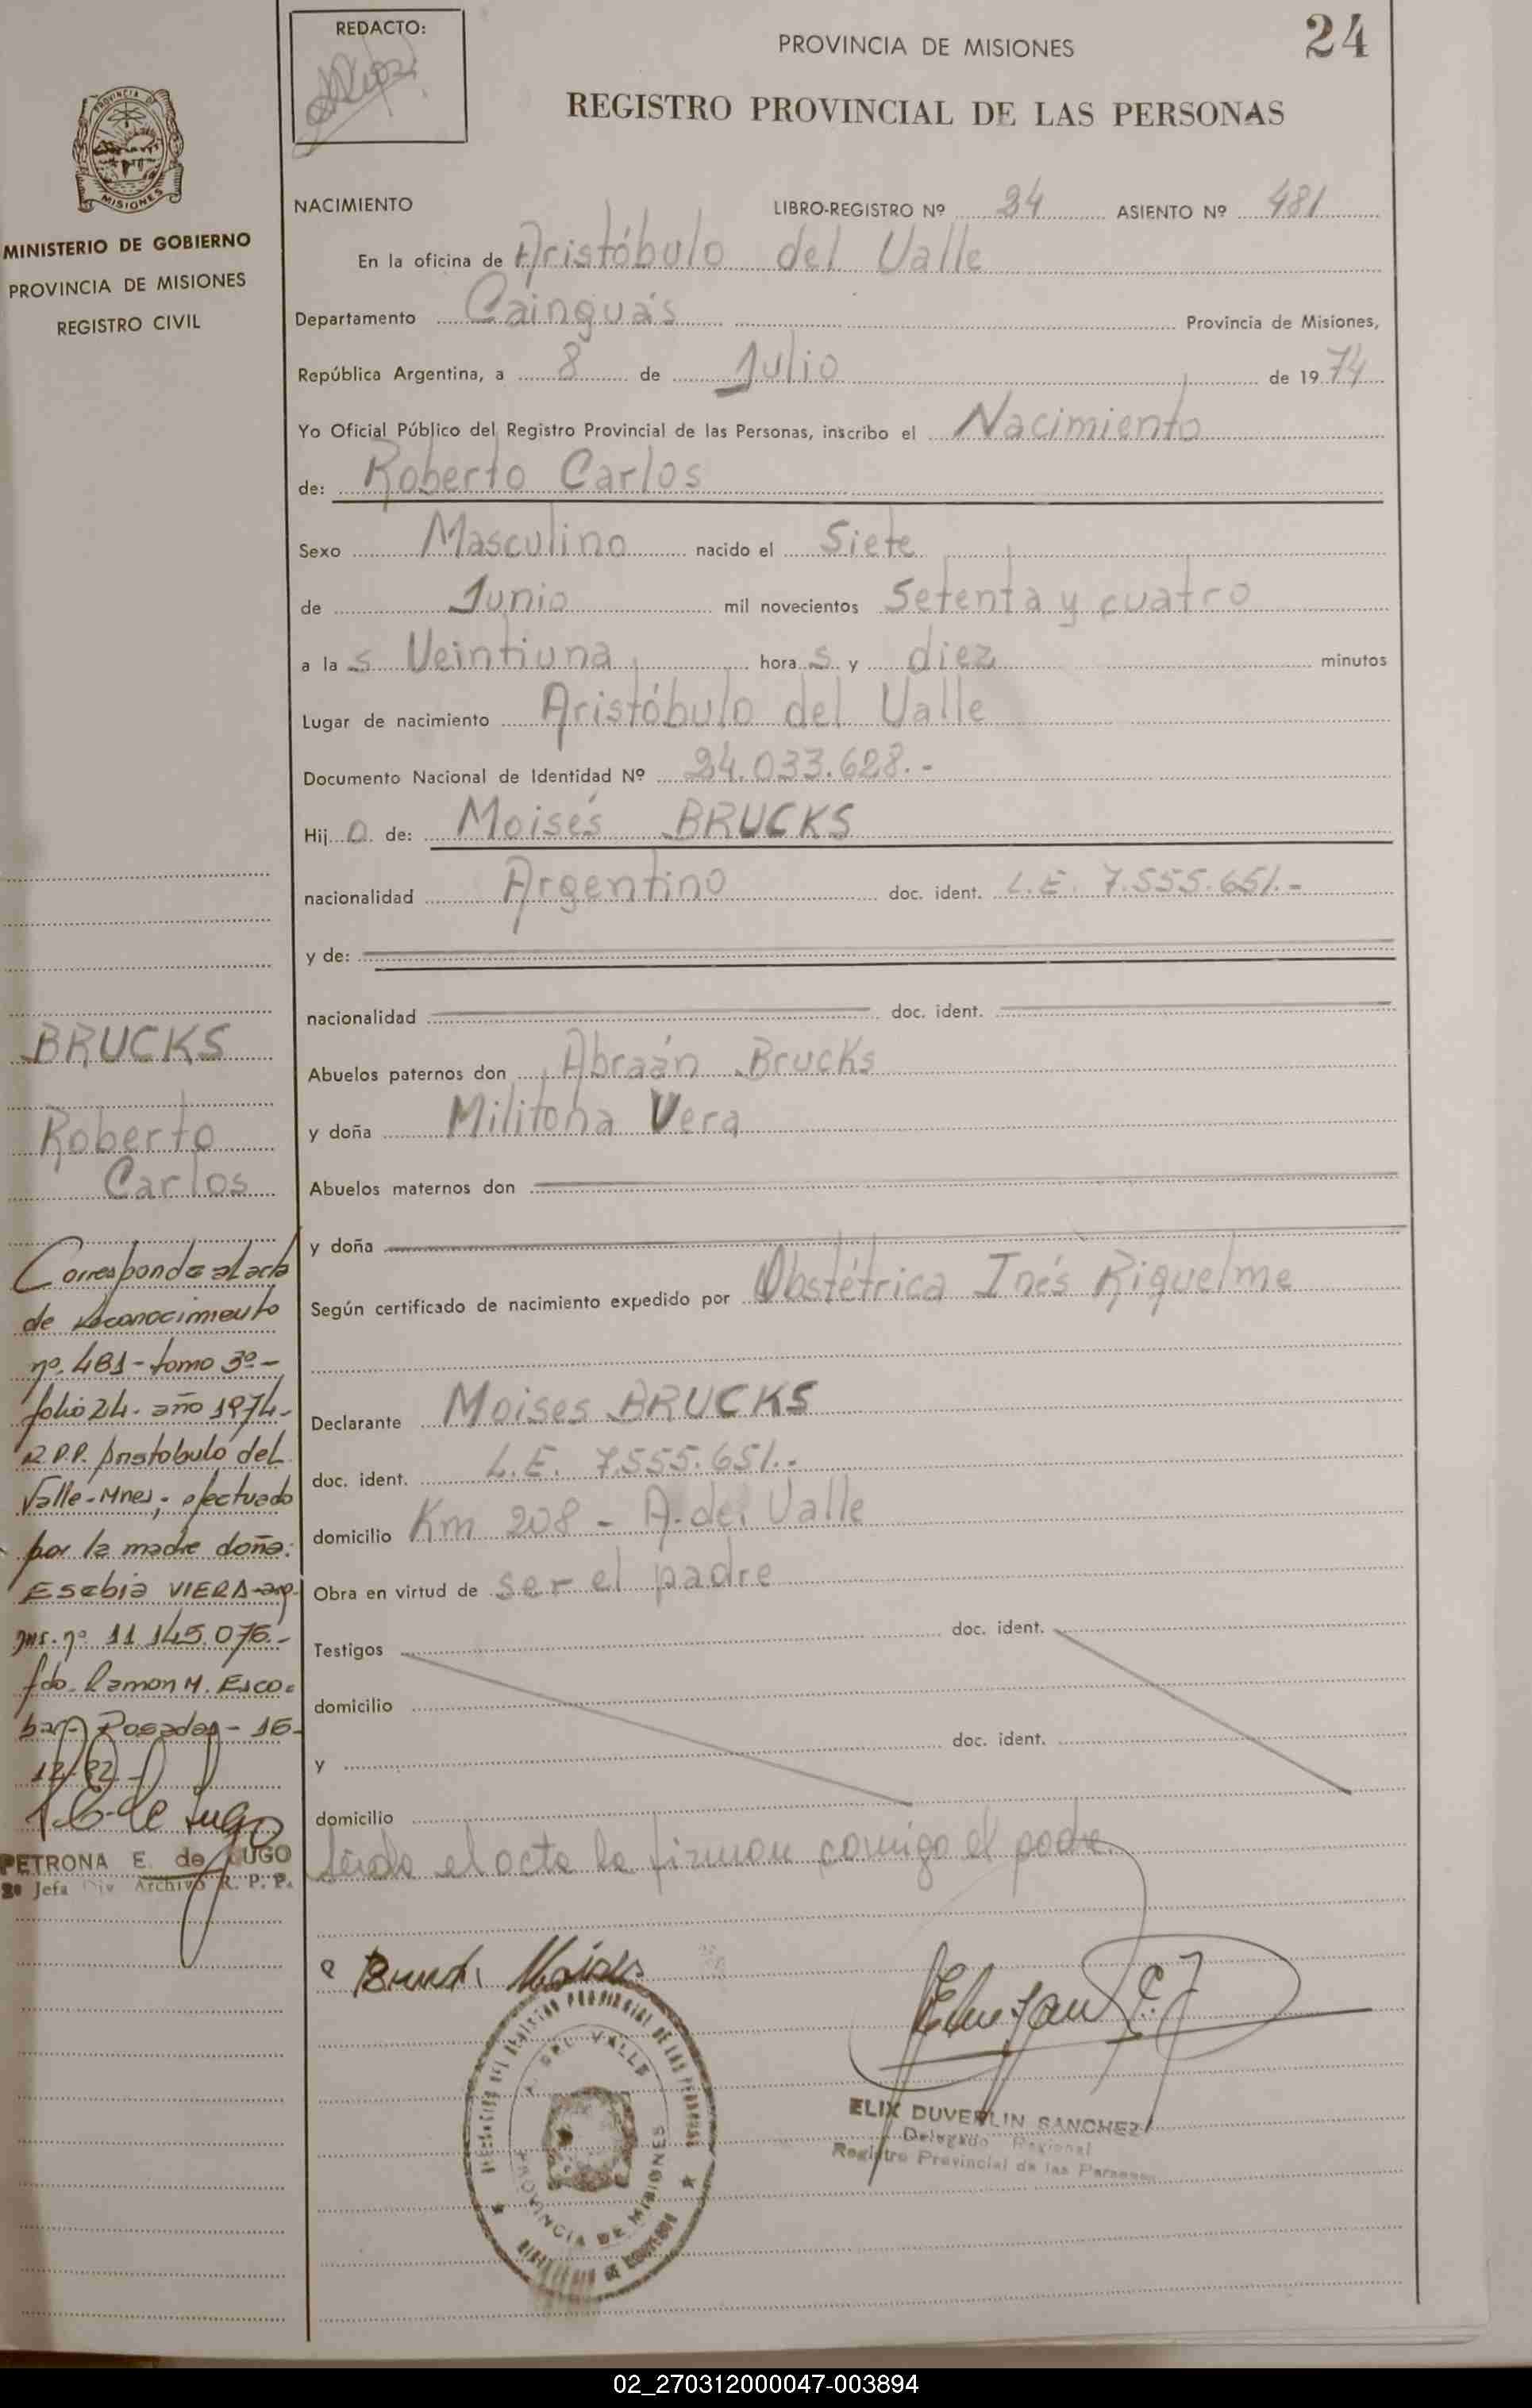 REDACTO:
PROVINCIA DE MISIONES
24
REGISTRO PROVINCIAL DE LAS PERSONAS
PROVINCIA DE
MISIONES
MINISTERIO DE GOBIERNO
PROVINCIA DE MISIONES
REGISTRO CIVIL
NACIMIENTO LIBRO-REGISTRO Nº 24 ASIENTO Nº 481
En la oficina de Aristóbulo del Valle
Departamento Cainguás Provincia de Misiones,
República Argentina, a 8 de Julio de 1974
Yo Oficial Público del Registro Provincial de las Personas, inscribo el Nacimiento
de: Roberto Carlos
Sexo Masculino nacido el Siete
de Junio mil novecientos Setenta y cuatro
a las Veintiuna horas y diez minutos
Lugar de nacimiento Aristóbulo del Valle
Documento Nacional de Identidad Nº 24.033.628.-
Hijo de: Moisés BRUCKS
nacionalidad Argentino doc. ident. L.E. 7.555.651.-
y de:
nacionalidad doc. ident.
Abuelos paternos don Abraán Brucks
y doña Militona Vera
Abuelos maternos don
y doña
Según certificado de nacimiento expedido por Obstétrica Inés Riquelme
Declarante Moises BRUCKS
doc. ident. L.E. 7.555.651.-
domicilio Km 208 - A. del Valle
Obra en virtud de ser el padre
Testigos doc. ident.
domicilio
y doc. ident.
domicilio
Leida el acta la firman comigo el padre.
BRUCKS
Roberto
Carlos
Corresponde al acta
de reconocimiento
nº 481 - tomo 3º -
folio 24 - año 1974 -
R.P.P. Aristobulo del
Valle - Mnes, - efectuado
por la madre doña:
Esabia VIERA - arg.
nº 11.145.076.-
fdo. Ramon M. Esco=
bar - Posadas - 16-
12-82-
PETRONA E. de LUGO
2º Jefa Div Archivo R. P. P.
Moisés
A. DEL VALLE
PROVINCIA DE MISIONES
ELIX DUVERLIN SANCHEZ
Delegado Regional
Registro Provincial de las Personas
02_270312000047-003894